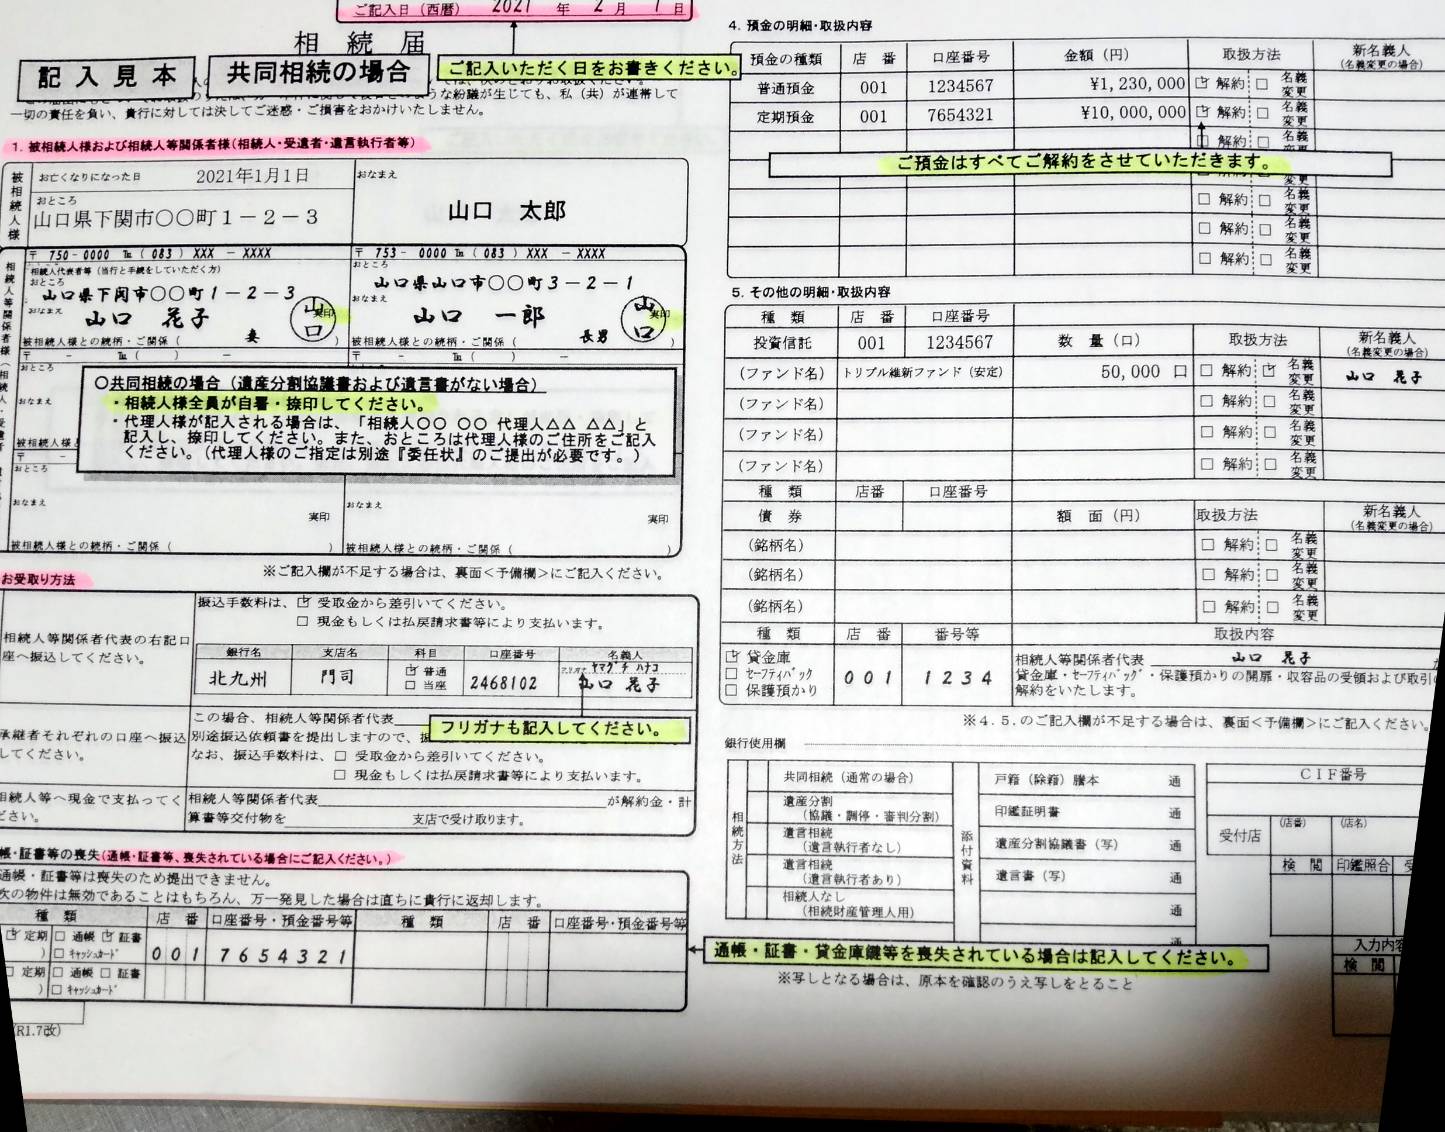 ご記入日（西暦） 2021 年 2 月 1 日
相 続 届
記 入 見 本
共同相続の場合
ご記入いただく日をお書きください。
一切の責任を負い、貴行に対しては決してご迷惑・ご損害をおかけいたしません。
1. 被相続人様および相続人等関係者様（相続人・受遺者・遺言執行者等）
被相続人様
お亡くなりになった日 2021年1月1日
おところ
山口県下関市〇〇町１－２－３
おなまえ
山口 太郎
〒 750 - 0000 ℡ ( 083 ) XXX － XXXX
相続人代表者等（当行と手続をしていただく方）
おところ
山口県下関市〇〇町１－２－３
おなまえ
山口 花子
山口 実印
被相続人様との続柄・ご関係（ 妻 ）
〒 753 - 0000 ℡ ( 083 ) XXX － XXXX
おところ
山口県山口市〇〇町３－２－１
おなまえ
山口 一郎
山口 実印
被相続人様との続柄・ご関係（ 長男 ）
〒 － ℡ ( ) －
〒 － ℡ ( ) －
おところ
おなまえ
〇共同相続の場合（遺産分割協議書および遺言書がない場合）
・相続人様全員が自署・捺印してください。
・代理人様が記入される場合は、「相続人〇〇 〇〇 代理人△△ △△」と
記入し、捺印してください。また、おところは代理人様のご住所をご記入
ください。（代理人様のご指定は別途『委任状』のご提出が必要です。）
おところ
おなまえ 実印
おなまえ 実印
被相続人様との続柄・ご関係（ ）
被相続人様との続柄・ご関係（ ）
※ご記入欄が不足する場合は、裏面＜予備欄＞にご記入ください。
お受取り方法
相続人等関係者代表の右記口
座へ振込してください。
振込手数料は、☑ 受取金から差引いてください。
□ 現金もしくは払戻請求書等により支払います。
銀行名 支店名 科目 口座番号 名義人
北九州 門司 ☑ 普通 □ 当座 2468102 フリガナ ヤマグチ ハナコ
山口 花子
フリガナも記入してください。
承継者それぞれの口座へ振込
してください。
この場合、相続人等関係者代表
別途振込依頼書を提出しますので、
なお、振込手数料は、□ 受取金から差引いてください。
□ 現金もしくは払戻請求書等により支払います。
相続人等へ現金で支払ってく
ださい。
相続人等関係者代表 が解約金・計
算書等交付物を 支店で受け取ります。
帳・証書等の喪失（通帳・証書等、喪失されている場合にご記入ください。）
通帳・証書等は喪失のため提出できません。
次の物件は無効であることはもちろん、万一発見した場合は直ちに貴行に返却します。
種 類 店 番 口座番号・預金番号等 種 類 店 番 口座番号・預金番号等
☑ 定期 □ 通帳 ☑ 証書
) □ ｷｬｯｼｭｶｰﾄﾞ
001 7654321
□ 定期 □ 通帳 □ 証書
) □ ｷｬｯｼｭｶｰﾄﾞ
(R1.7改)
4. 預金の明細・取扱内容
預金の種類 店 番 口座番号 金額（円） 取扱方法 新名義人
（名義変更の場合）
普通預金 001 1234567 ¥1,230,000 ☑ 解約 □ 名義変更
定期預金 001 7654321 ¥10,000,000 ☑ 解約 □ 名義変更
□ 解約 □ 名義変更
ご預金はすべてご解約をさせていただきます。
□ 解約 □ 名義変更
□ 解約 □ 名義変更
□ 解約 □ 名義変更
□ 解約 □ 名義変更
5. その他の明細・取扱内容
種 類 店 番 口座番号 数 量（口） 取扱方法 新名義人
（名義変更の場合）
投資信託 001 1234567
（ファンド名） トリプル維新ファンド（安定） 50,000 口 □ 解約 ☑ 名義変更 山口 花子
（ファンド名） □ 解約 □ 名義変更
（ファンド名） □ 解約 □ 名義変更
（ファンド名） □ 解約 □ 名義変更
種 類 店番 口座番号
債 券 額 面（円） 取扱方法 新名義人
（名義変更の場合）
（銘柄名） □ 解約 □ 名義変更
（銘柄名） □ 解約 □ 名義変更
（銘柄名） □ 解約 □ 名義変更
種 類 店 番 番号等 取扱内容
☑ 貸金庫
□ ｾｰﾌﾃｨﾊﾞｯｸ
□ 保護預かり
001 1234
相続人等関係者代表 山口 花子
貸金庫・ｾｰﾌﾃｨﾊﾞｯｸﾞ・保護預かりの開扉・収容品の受領および取引の
解約をいたします。
※４.５.のご記入欄が不足する場合は、裏面＜予備欄＞にご記入ください。
銀行使用欄
相続方法
共同相続（通常の場合）
遺産分割
（協議・調停・審判分割）
遺言相続
（遺言執行者なし）
遺言相続
（遺言執行者あり）
相続人なし
（相続財産管理人用）
添付資料
戸籍（除籍）謄本 通
印鑑証明書 通
遺産分割協議書（写） 通
遺言書（写） 通
通
通
ＣＩＦ番号
受付店 （店番） （店名）
検 閲 印鑑照合 受
入力内容
検 閲
通帳・証書・貸金庫鍵等を喪失されている場合は記入してください。
※写しとなる場合は、原本を確認のうえ写しをとること